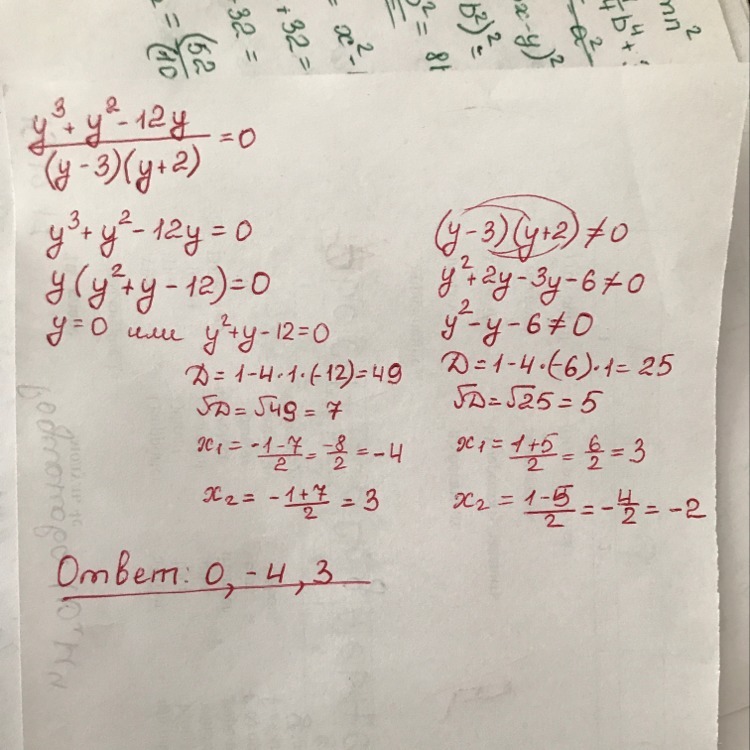 y³ + y² - 12y / (y - 3)(y + 2) = 0
y³ + y² - 12y = 0
y(y² + y - 12) = 0
y = 0 или y² + y - 12 = 0
D = 1 - 4 · 1 · (-12) = 49
√D = √49 = 7
x₁ = -1-7/2 = -8/2 = -4
x₂ = -1+7/2 = 3
(y - 3)(y + 2) ≠ 0
y² + 2y - 3y - 6 ≠ 0
y² - y - 6 ≠ 0
D = 1 - 4 · (-6) · 1 = 25
√D = √25 = 5
x₁ = 1+5/2 = 6/2 = 3
x₂ = 1-5/2 = -4/2 = -2
Ответ: 0, -4, 3